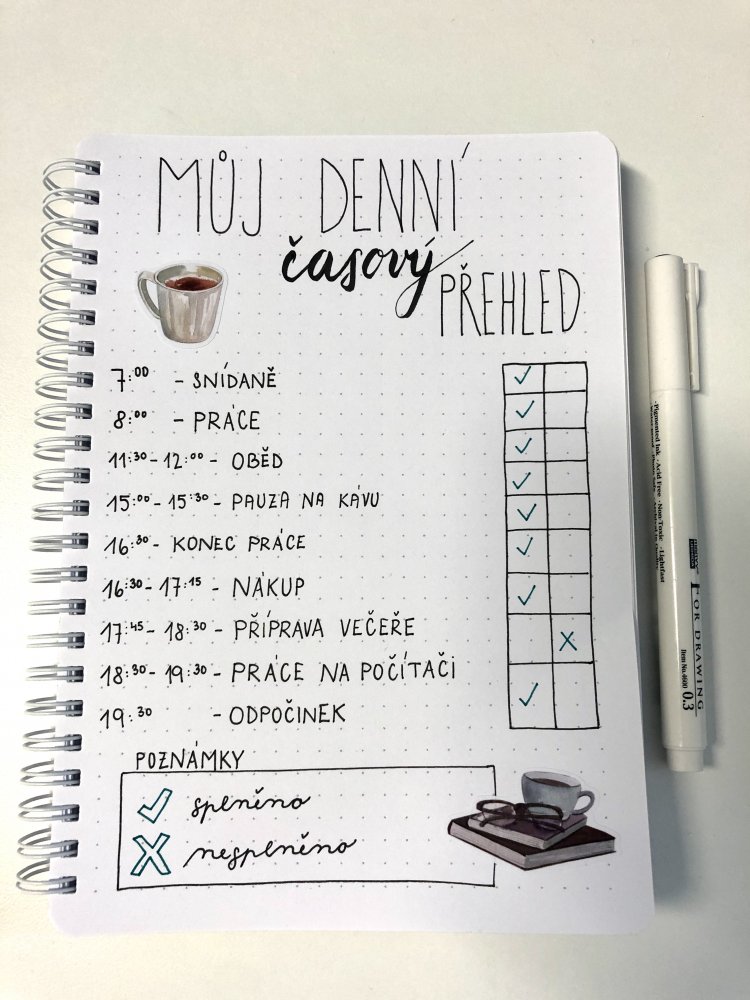 MŮJ DENNÍ
časový
PŘEHLED
7:00 - SNÍDANĚ
8:00 - PRÁCE
11:30 - 12:00 - OBĚD
15:00 - 15:30 - PAUZA NA KÁVU
16:30 - KONEC PRÁCE
16:30 - 17:15 - NÁKUP
17:45 - 18:30 - PŘÍPRAVA VEČEŘE
18:30 - 19:30 - PRÁCE NA POČÍTAČI
19:30 - ODPOČINEK
POZNÁMKY
✓ splněno
X nesplněno
·Pigmented Ink ·Acid Free ·Non Toxic ·Lightfast
FOR DRAWING
Item No.4600 0.3